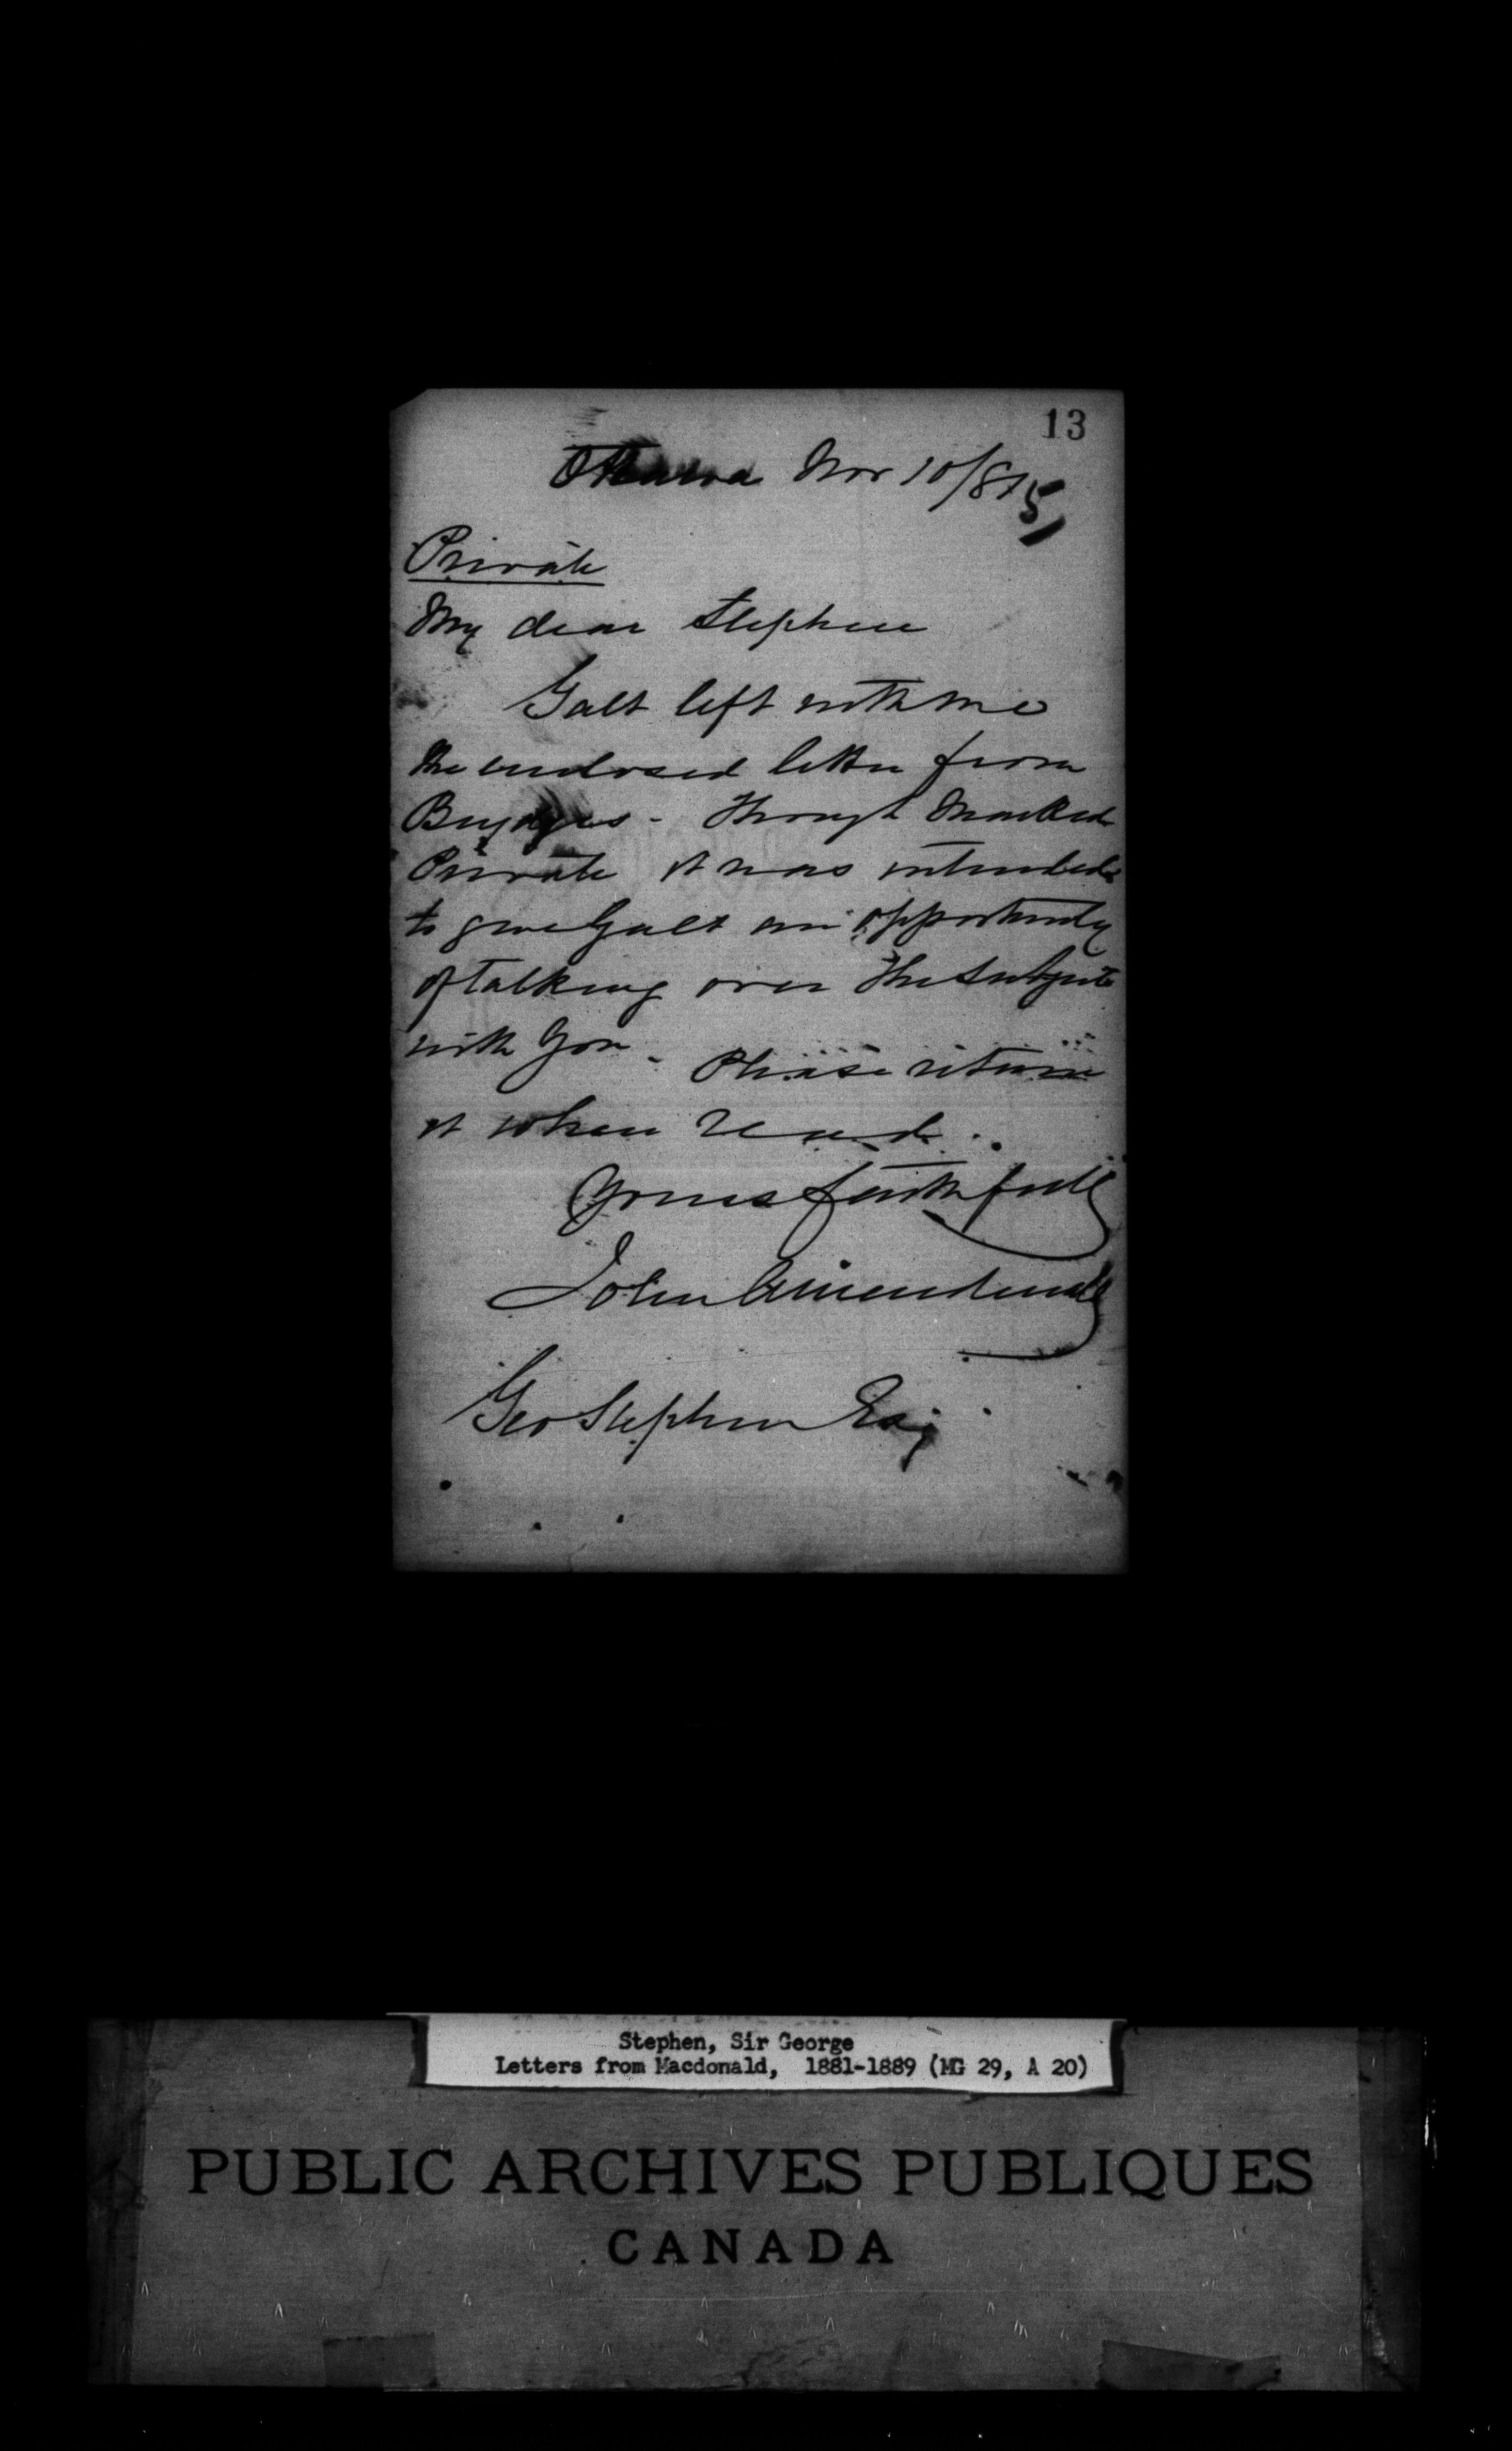 13
Ottawa Nov 10/81
5/
Private
My dear Stephen
Galt left with me
the enclosed letter from
Brydges - Though marked
Private it was intended
to give Galt an opportunity
of talking over the subject
with you - Please return
it when read.
Yours faithfully
John A Macdonald
Geo Stephen Esq
Stephen, Sir George
Letters from Macdonald, 1881-1889 (MG 29, A 20)
PUBLIC ARCHIVES PUBLIQUES
CANADA